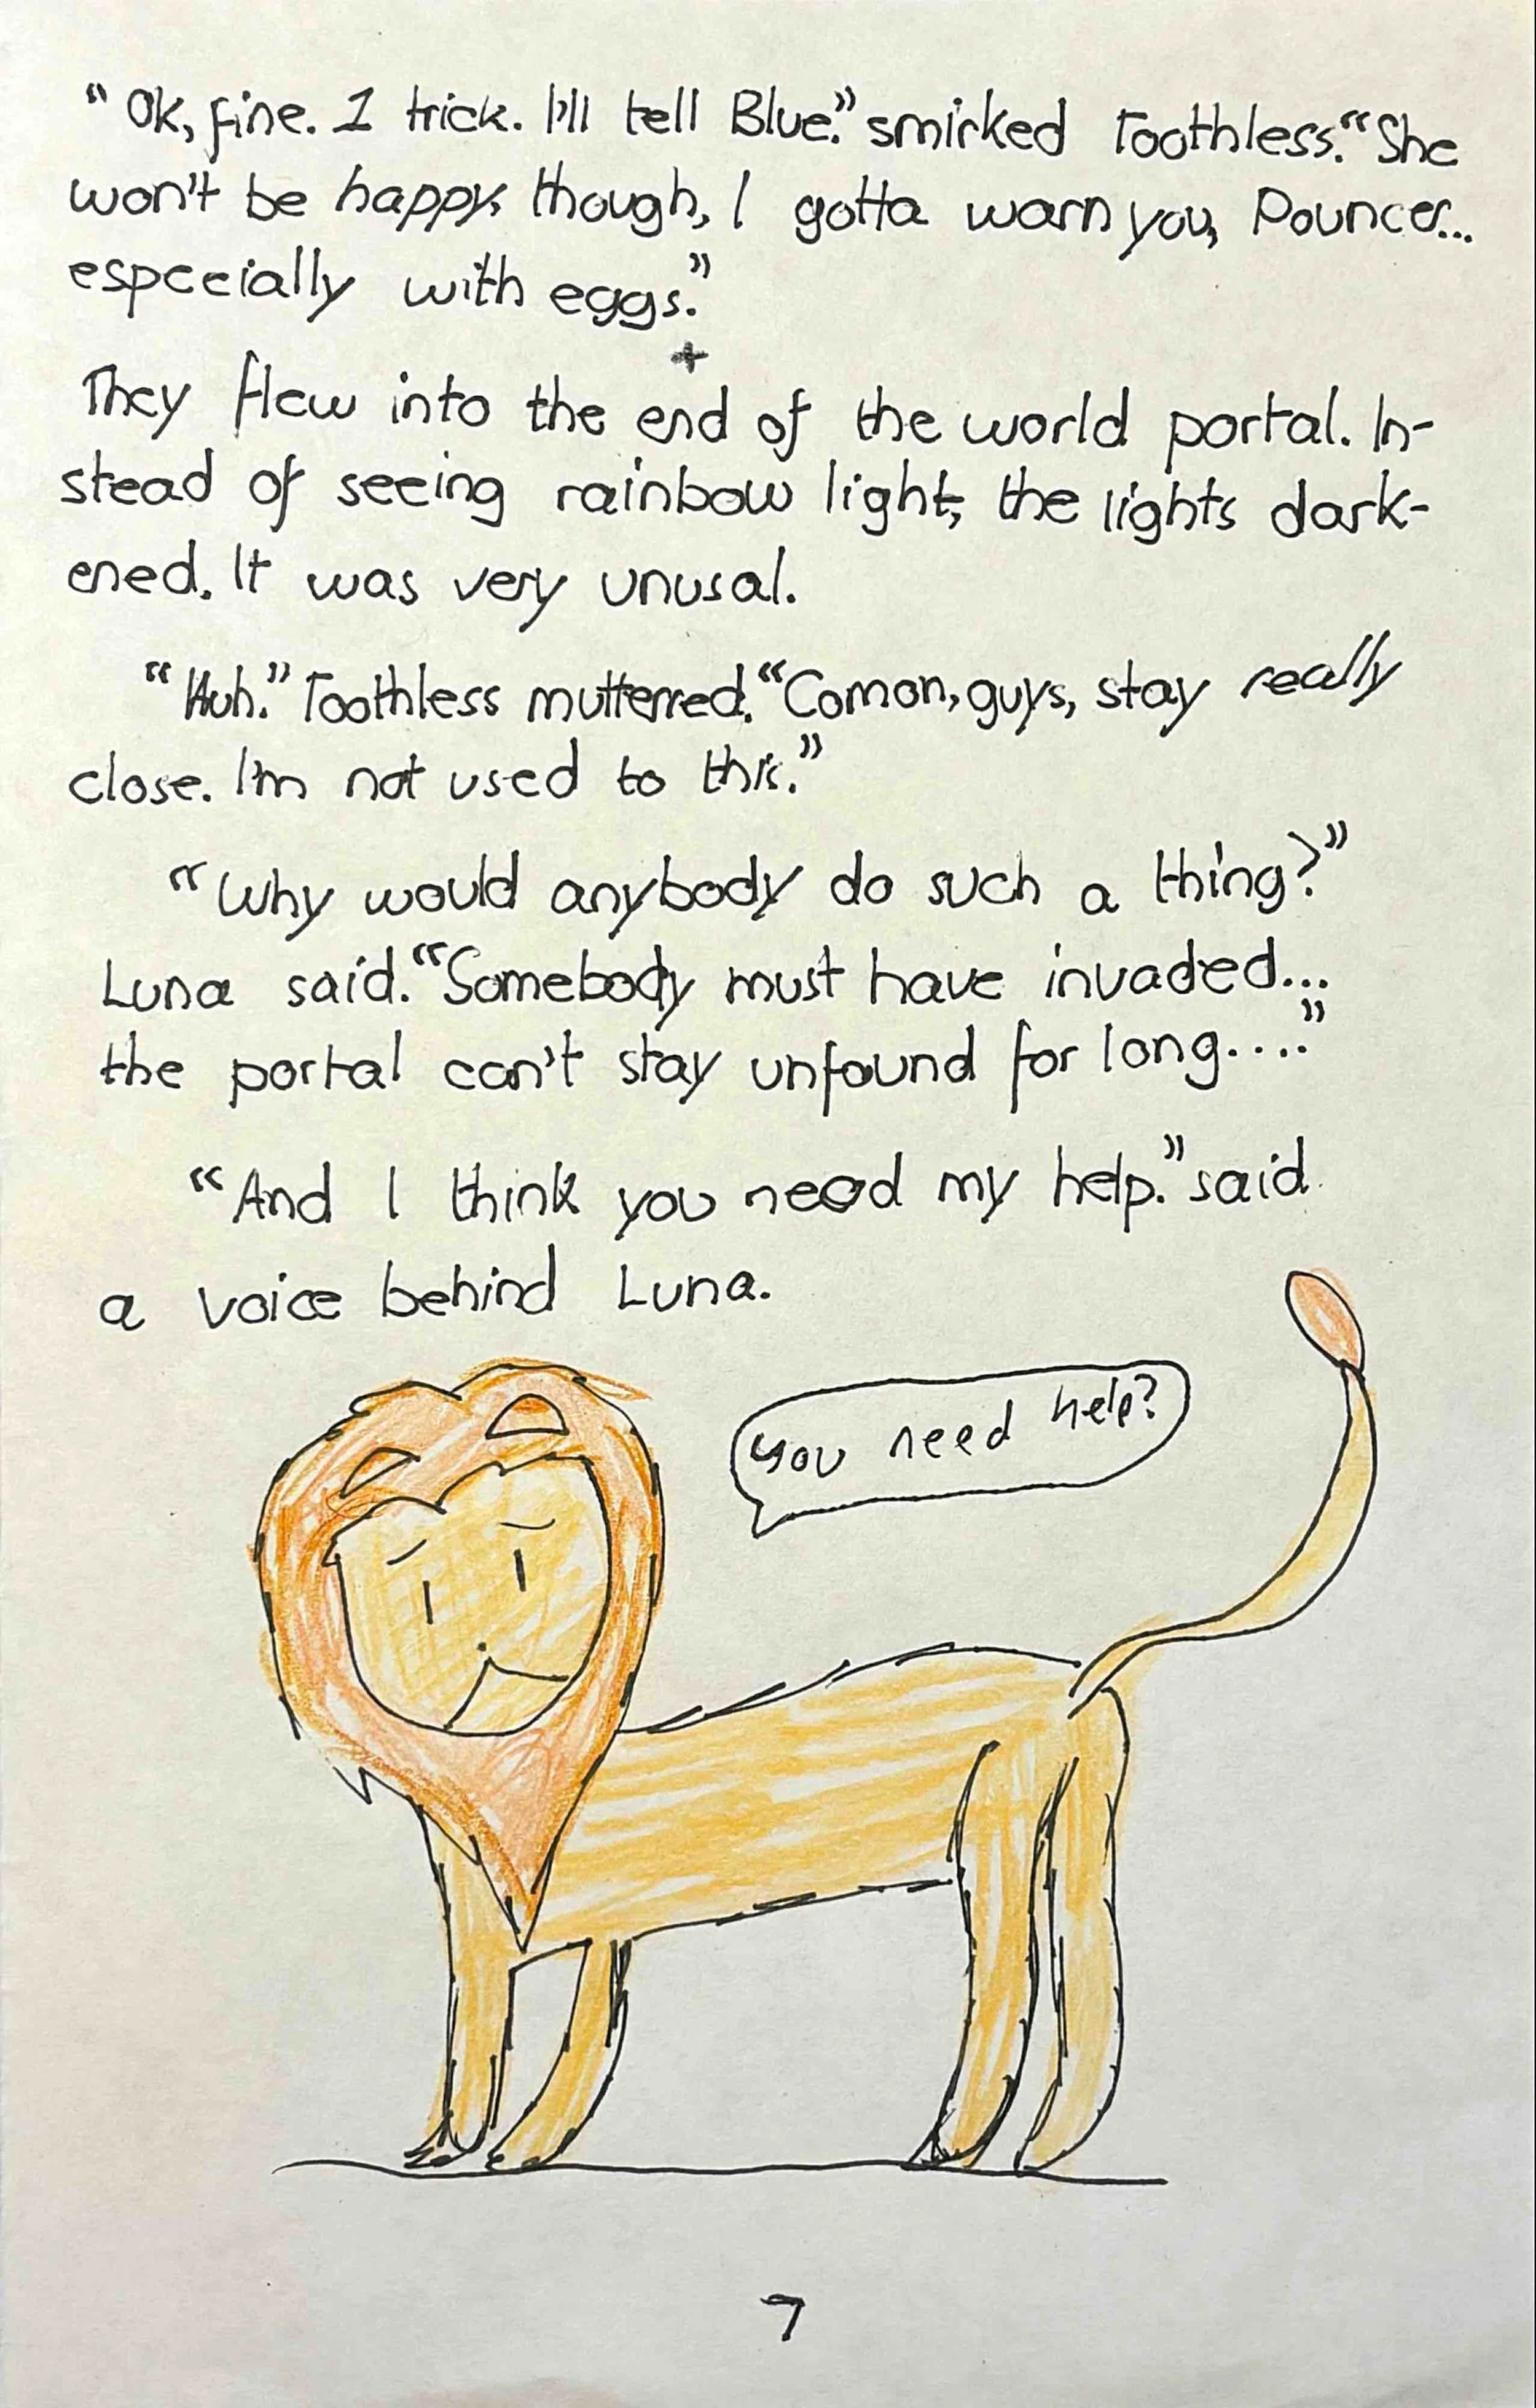 “Ok, fine. 1 trick. I'll tell Blue.” smirked Toothless. “She
won't be happy, though, I gotta warn you, Pouncer...
especcially with eggs.”
+
They flew into the end of the world portal. In-
stead of seeing rainbow light, the lights dark-
ened. It was very unusal.
“Huh.” Toothless mutterred. “Comon, guys, stay really
close. I'm not used to this.”
“Why would anybody do such a thing?”
Luna said. “Somebody must have invaded...
the portal can't stay unfound for long....”
“And I think you need my help.” said
a voice behind Luna.
you need help?
7